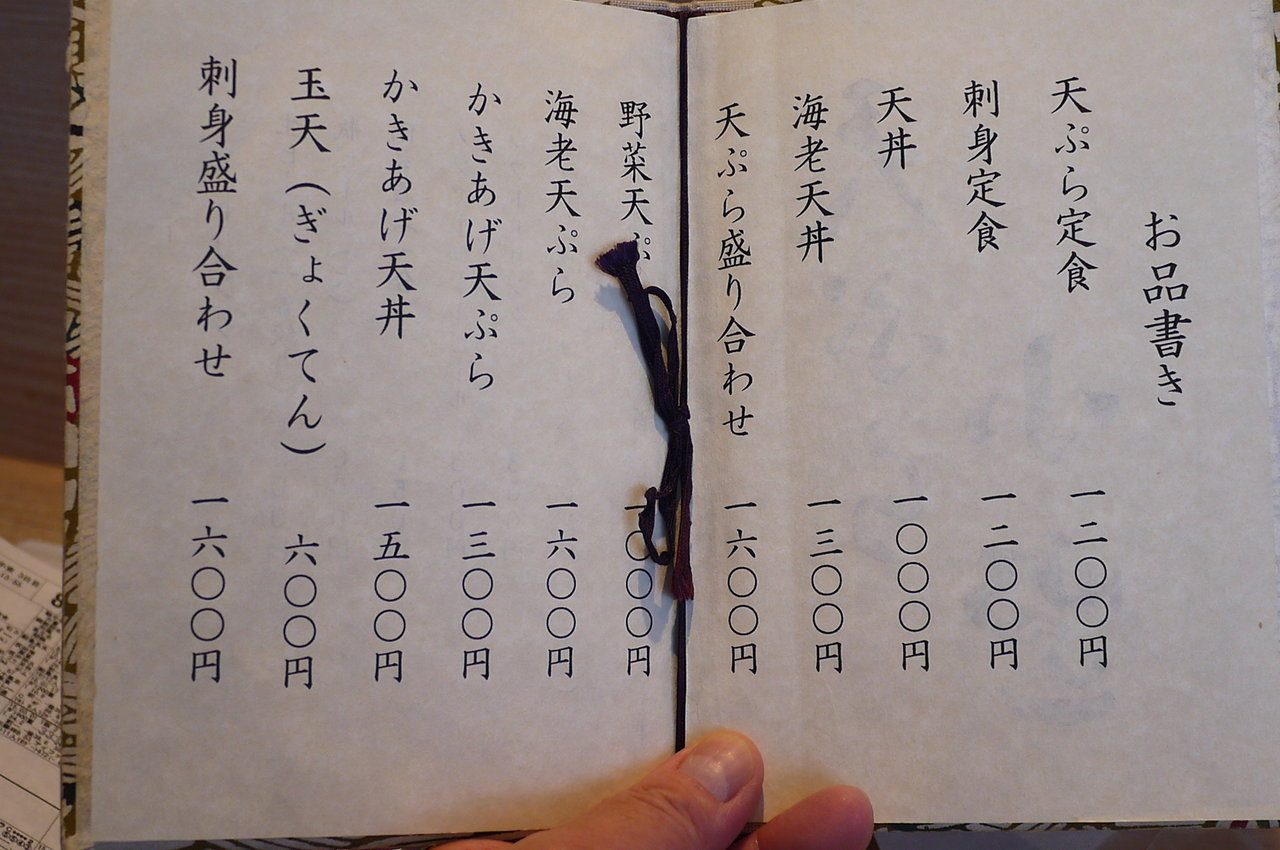 お品書き
天ぷら定食 一二〇〇円
刺身定食 一二〇〇円
天丼 一〇〇〇円
海老天丼 一三〇〇円
天ぷら盛り合わせ 一六〇〇円
野菜天ぷ 一〇〇〇円
海老天ぷら 一六〇〇円
かきあげ天ぷら 一三〇〇円
かきあげ天丼 一五〇〇円
玉天（ぎょくてん） 六〇〇円
刺身盛り合わせ 一六〇〇円